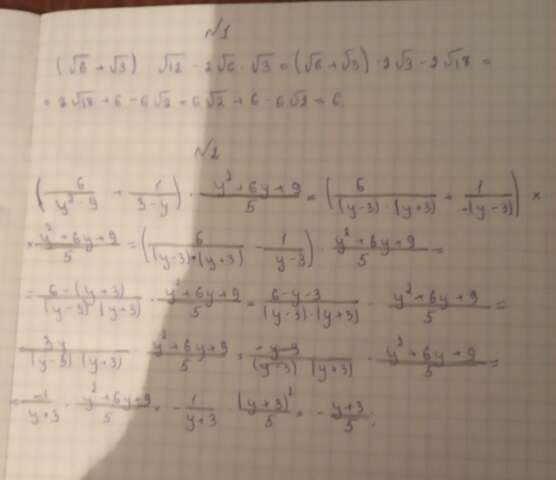 №1
(√6 + √3) · √12 - 2√6 · √3 = (√6 + √3) · 2√3 - 2√18 =
= 2√18 + 6 - 6√2 = 6√2 + 6 - 6√2 = 6.
№2
(6/(y² - 9) + 1/(3 - y)) · (y² + 6y + 9)/5 = (6/((y-3) · (y+3)) + 1/(-(y-3))) ×
× (y² + 6y + 9)/5 = (6/((y-3)·(y+3)) - 1/(y-3)) · (y² + 6y + 9)/5 =
= (6 - (y+3))/((y-3)(y+3)) · (y² + 6y + 9)/5 = (6 - y - 3)/((y-3)·(y+3)) · (y² + 6y + 9)/5 =
(3y)/((y-3)(y+3)) · (y² + 6y + 9)/5 = (-y-3)/((y-3)(y+3)) · (y² + 6y + 9)/5 =
= -1/(y+3) · (y² + 6y + 9)/5 = -1/(y+3) · (y+3)²/5 = -(y+3)/5.